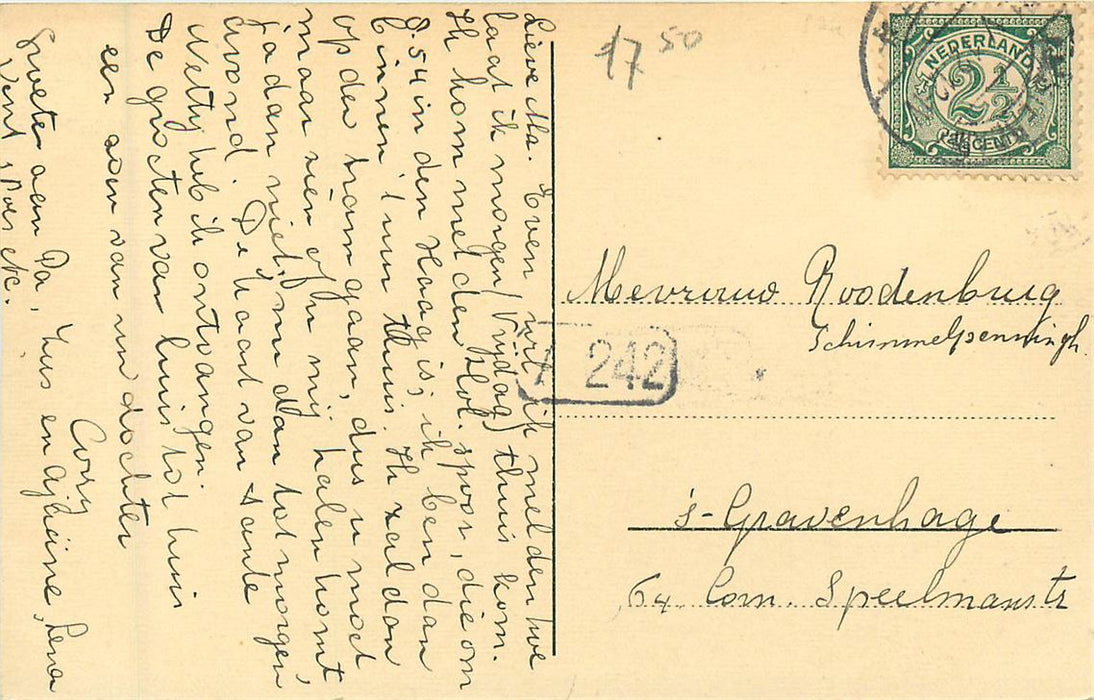 Lieve Ma. Even wil ik melden hoe
laat ik morgen (Vrijdag) thuis kom.
Ik kom met den Hol. spoor, die om
8.54 in den Haag is; ik ben dan
binnen 1 uur thuis. Ik zal dan
op den tram gaan, dus u moet
maar zien of u mij halen komt
ja dan niet; nu dan tot morgen
avond. De kaart van tante
Netty heb ik ontvangen.
De groeten van huis tot huis
een zoen van uw dochter
Corry
Groeten aan Pa, Zus en Lena
Vent, Poes etc.
17 50
NEDERLAND
2½
CENT
242
Mevrouw Roodenburg
Schimmelpenningh
's-Gravenhage
64 Corn. Speelmanstr